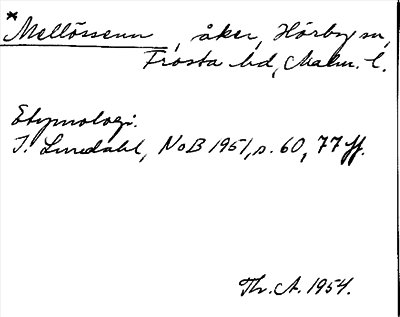 *Mellössenn, åker, Hörby sn,
Frosta hd, Malm. l.
Etymologi.
I. Lundahl, NoB 1951, s. 60, 77 ff.
Th. A. 1954.